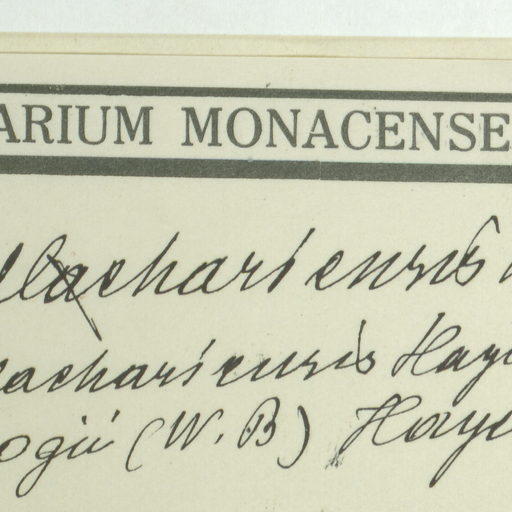 ARIUM MONACENSE
achariensis
achariensis Hay
ogii (W. B) Haye